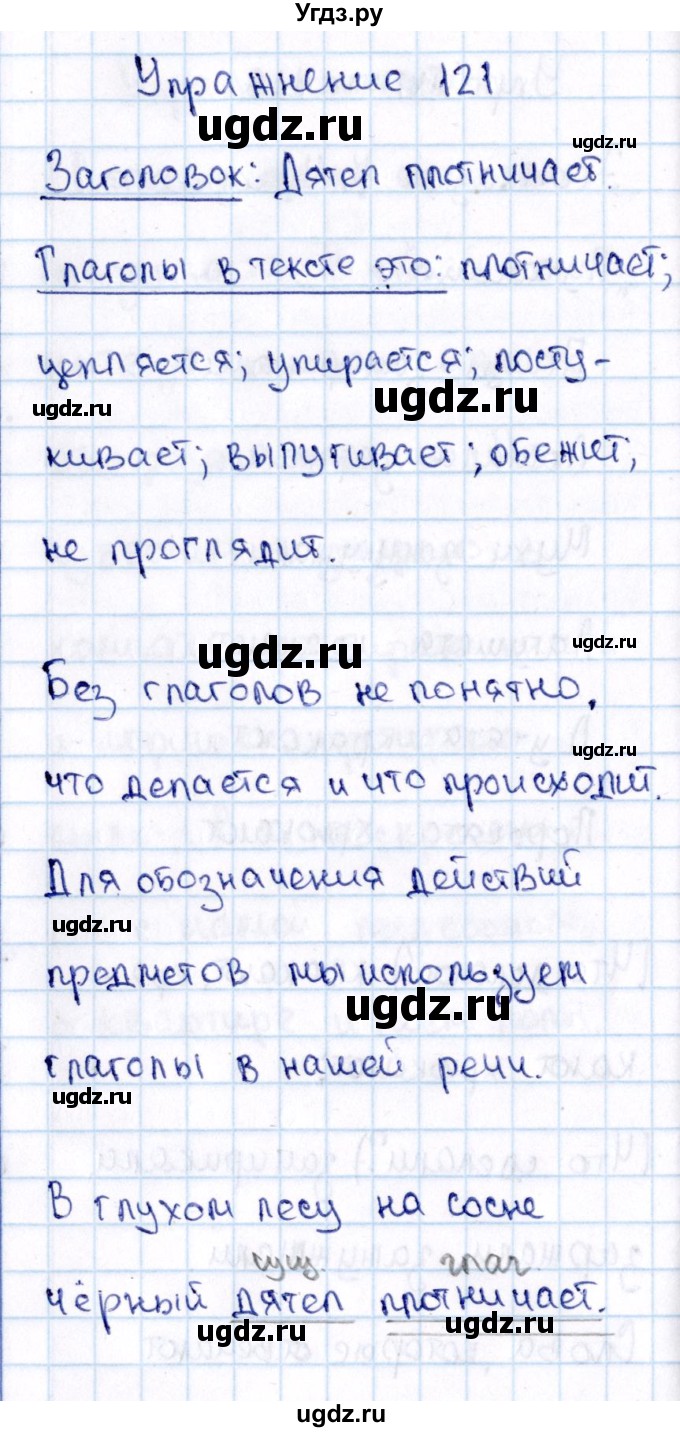 Угдз.ру
Упражнение 121
ugdz.ru
ugdz.ru
Заголовок: Дятел плотничает.
ugdz.ru
Глаголы в тексте это: плотничает;
цепляется; упирается; посту-
ugdz.ru
ugdz.ru
кивает; выпугивает; обежит;
не проглядит.
ugdz.ru
ugdz.ru
Без глаголов не понятно,
ugdz.ru
что делается и что происходит.
Для обозначения действий
ugdz.ru
предметов мы используем
ugdz.ru
глаголы в нашей речи.
ugdz.ru
В глухом лесу на сосне
сущ. глаг
чёрный дятел плотничает.
ugdz.ru
ugdz.ru
ugdz.ru